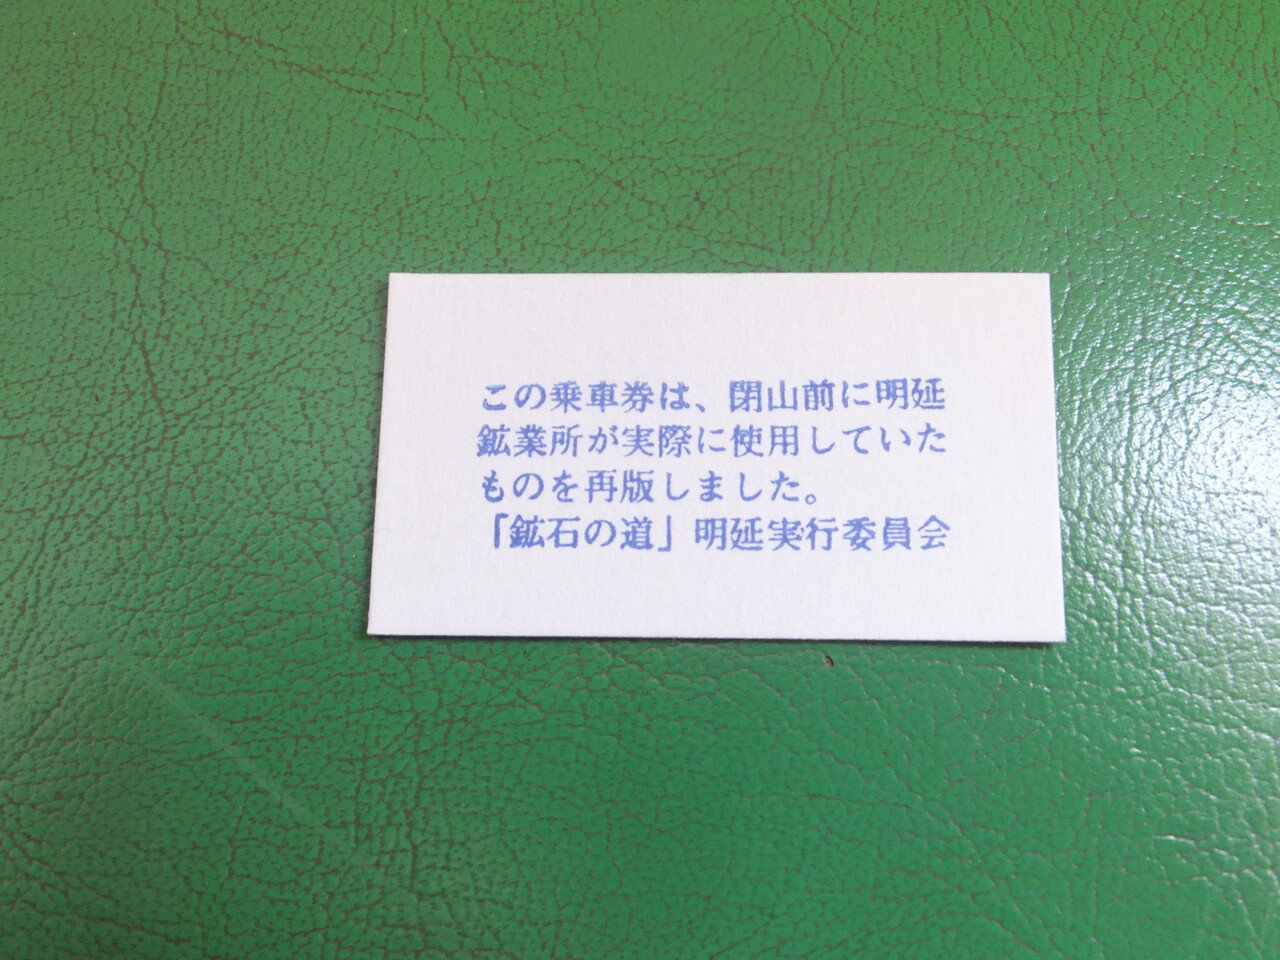 この乗車券は、閉山前に明延
鉱業所が実際に使用していた
ものを再版しました。
「鉱石の道」明延実行委員会